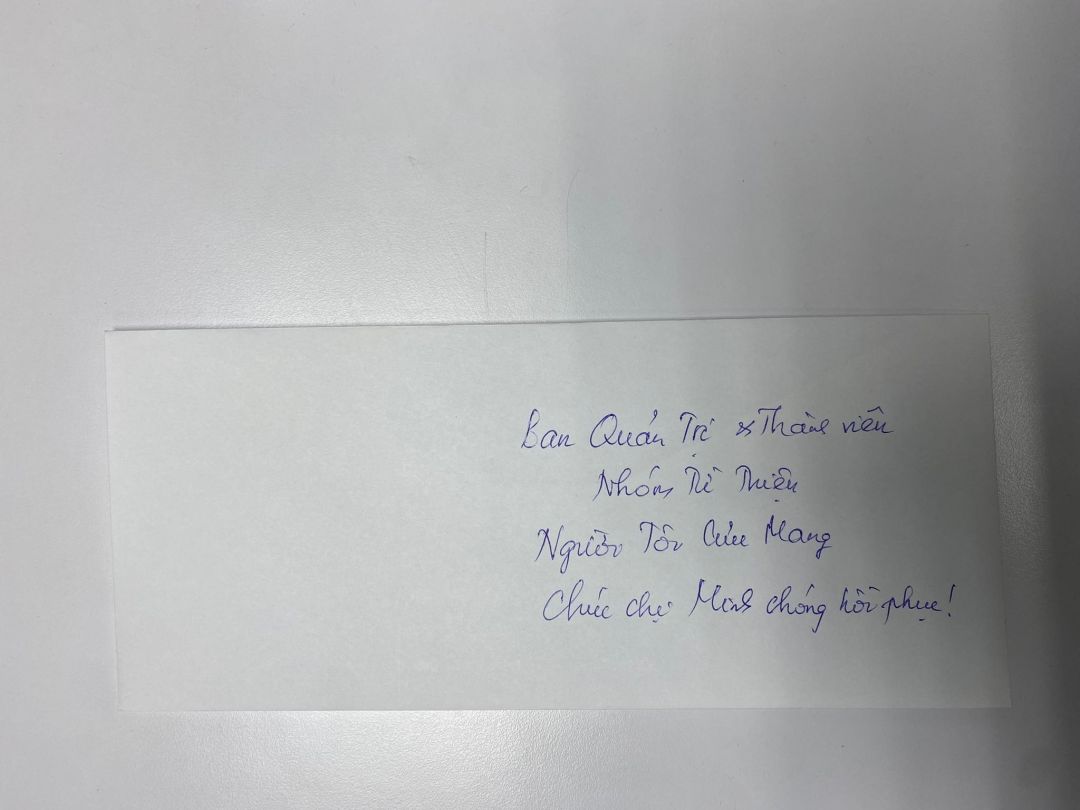 Ban Quản Trị & Thành viên
Nhóm Từ Thiện
Người Tôi Cưu Mang
Chúc chị Minh chóng hồi phục!